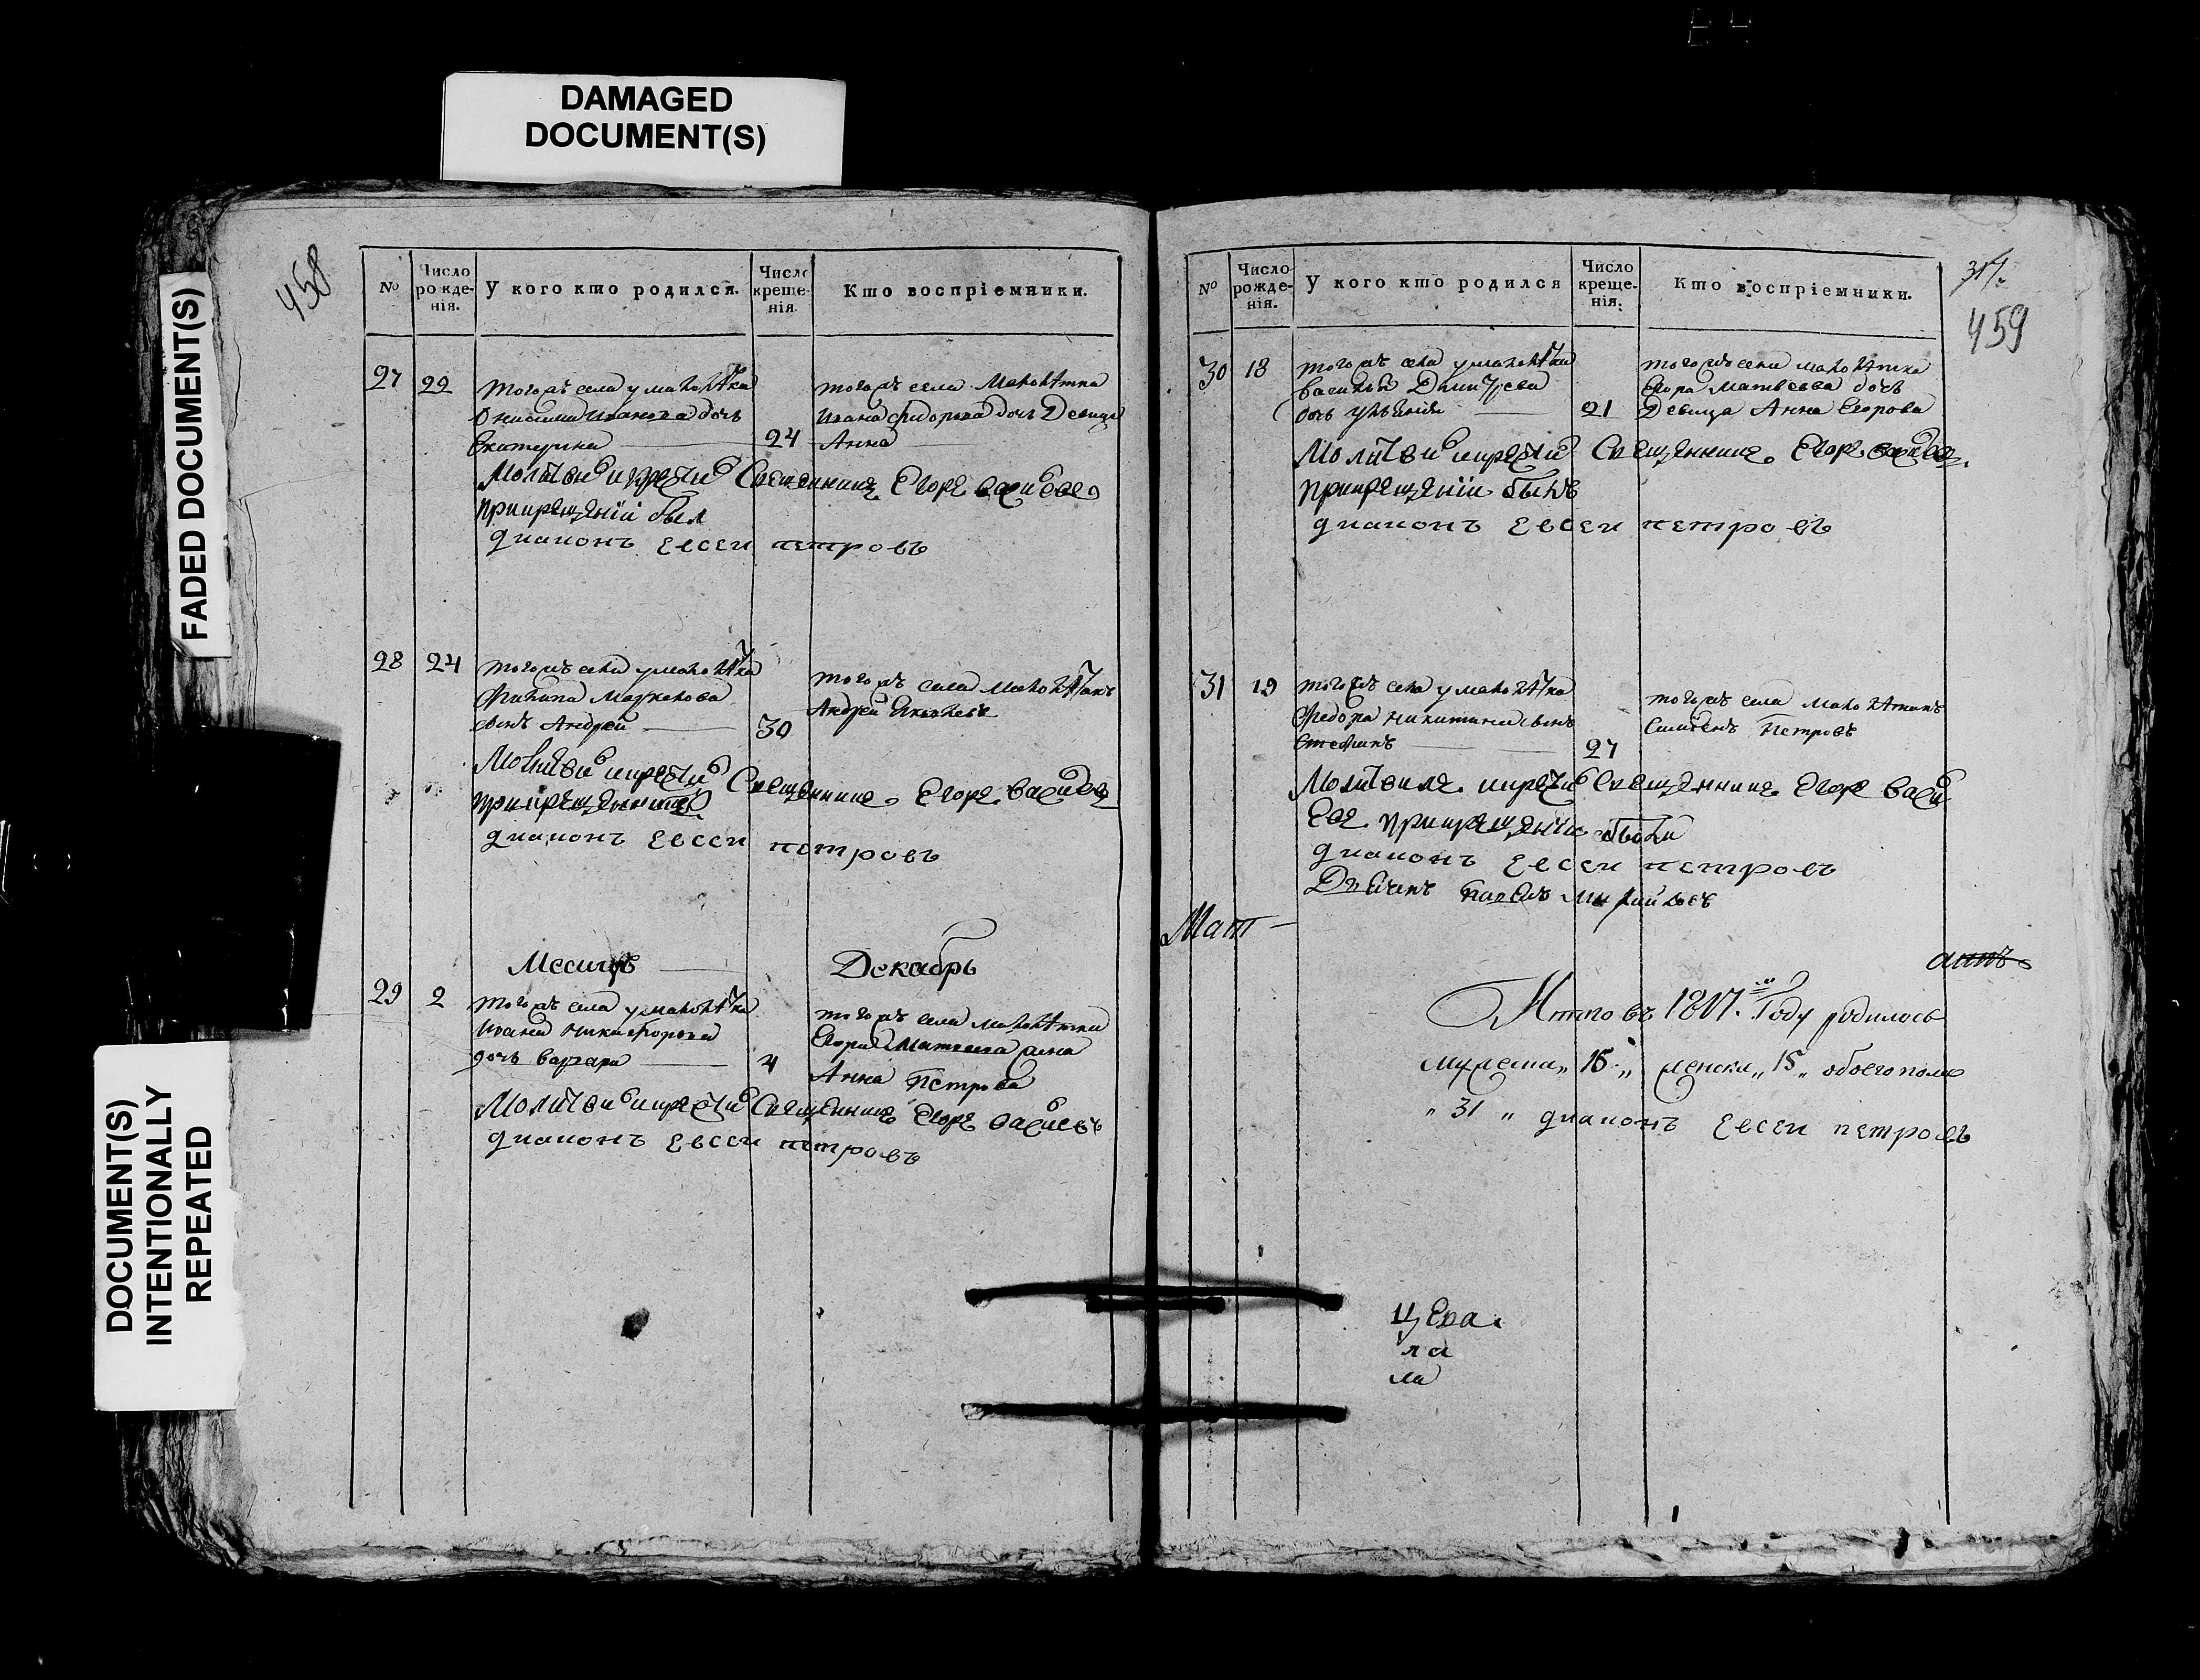 DAMAGED
DOCUMENT(S)
FADED DOCUMENT(S)
DOCUMENT(S)
INTENTIONALLY
REPEATED
458
№
Число рожденія.
У кого кто родился.
Число крещенія.
Кто воспріемники.
27 22
тогожъ села у малолѣтка
Онисима Иванова дочь
Екатерина 24
тогожъ села малолѣтка
Ивана Федорова дочь Девица
Анна
Молитвилъ и крестилъ Священникъ Егоръ Васильевъ
при крещеніи был
диаконъ Евсеи петровъ
28 24
тогожъ села у малолѣтка
Филипа
сынъ Андрей 30
тогожъ села малолѣтокъ
Андрей
Молитвилъ и крестилъ Священникъ Егоръ Васильевъ
диаконъ Евсеи петровъ
Месицъ Декабрь
29 2
тогожъ села у малолѣтка
Ивана Никифорова
дочь Варвара 4
тогожъ села малолѣтка
Егора Матвеева жена
Анна Петрова
Молитвилъ и крестилъ Священникъ Егоръ Васильевъ
диаконъ Евсеи петровъ
459
№
Число рожденія.
У кого кто родился
Число крещенія.
Кто воспріемники.
30 18
тогожъ села у малолѣтка
Василья
дочь 21
тогожъ села малолѣтка
Егора Матвеева дочь
Девица Анна Егорова
Молитвилъ и крестилъ Священникъ Егоръ
при крещеніи былъ
диаконъ Евсеи петровъ
31 19
тогожъ села у малолѣтка
Федора Никитина сынъ
Стефанъ 27
тогожъ села малолѣтокъ
Петровъ
Молитвилъ и крестилъ Священникъ Егоръ Васильевъ
при крещеніи были
диаконъ Евсеи петровъ
Дьячекъ
Мат
Итого въ 1817. Году родилось
мужеска „ 16 „ женска „ 15 „ обоего пола
„ 31 „ диаконъ Евсеи петровъ